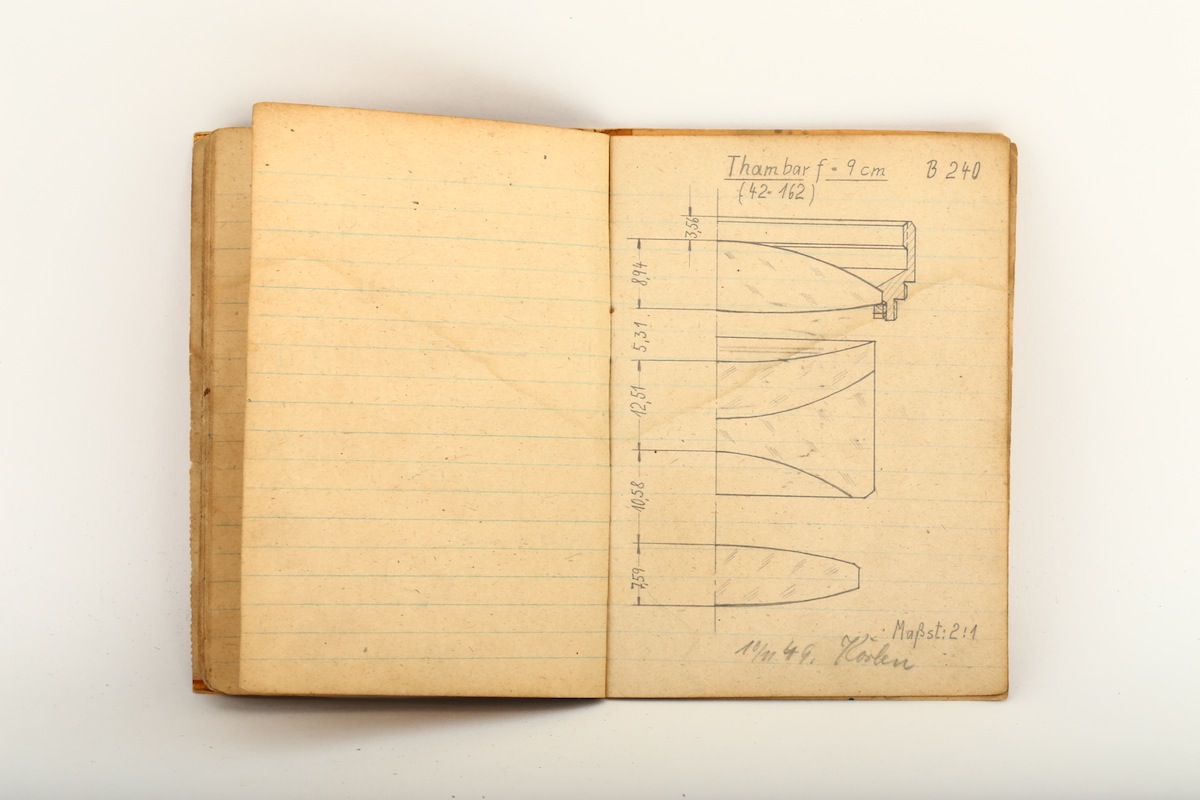 Thambar f = 9 cm B 240
(42-162)
3,56
8,94
5,31
12,51
10,58
7,59
Maßst: 2:1